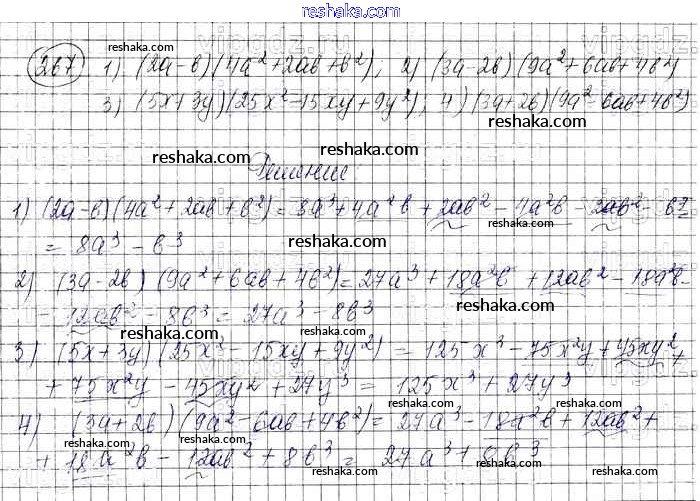 www.reshaka.com
reshaka.com
267 1) (2a-b)(4a²+2ab+b²); 2) (3a-2b)(9a²+6ab+4b²)
3) (5x+3y)(25x²-15xy+9y²); 4) (3a+2b)(9a²-6ab+4b²)
reshaka.com
reshaka.com
Решение:
reshaka.com
1) (2a-b)(4a²+2ab+b²)=8a³+4a²b+2ab²-4a²b-2ab²-b³=
= 8a³-b³
reshaka.com
2) (3a-2b)(9a²+6ab+4b²)=27a³+18a²b+12ab²-18a²b-
- 12ab²-8b³=27a³-8b³
reshaka.com
reshaka.com
3) (5x+3y)(25x²-15xy+9y²)=125x³-75x²y+45xy²+
+75x²y-45xy²+27y³=125x³+27y³
reshaka.com
reshaka.com
4) (3a+2b)(9a²-6ab+4b²)=27a³-18a²b+12ab²+
+18a²b-12ab²+8b³=27a³+8b³
reshaka.com
reshaka.com
reshaka.com